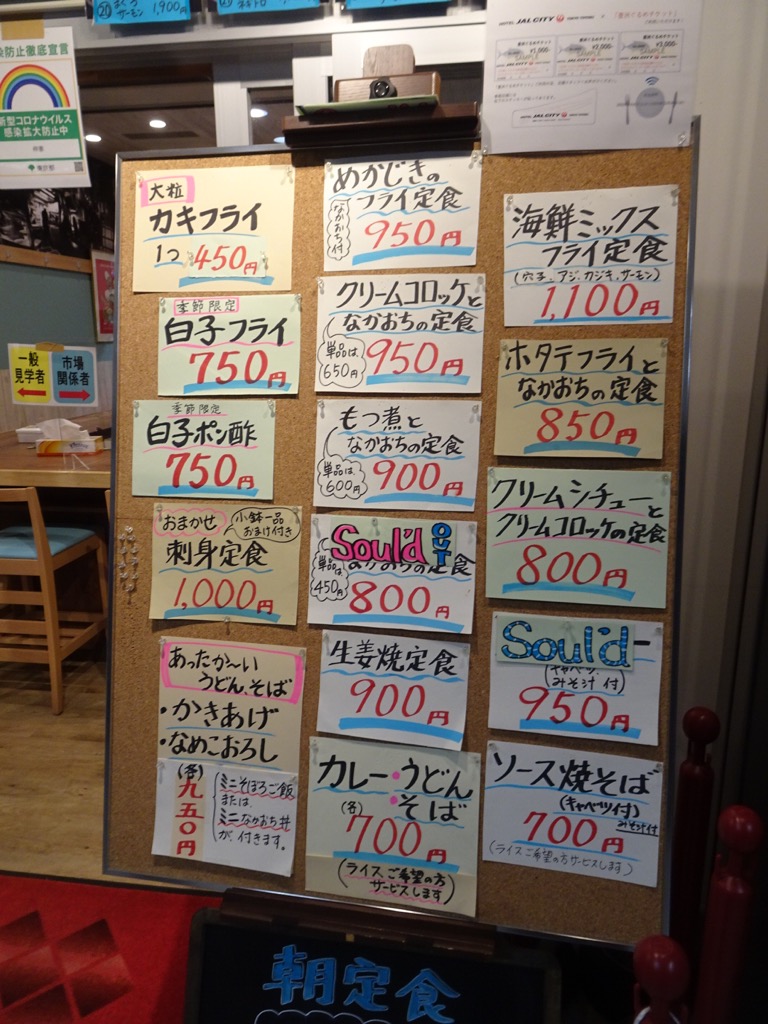 ⑳ まぐろ
サーモン 1,900円
染防止徹底宣言
新型コロナウイルス
感染拡大防止中
東京都
HOTEL JAL CITY
SAMPLE
SAMPLE
SAMPLE
HOTEL JAL CITY
一般
見学者
市場
関係者
大粒
カキフライ
1つ 450円
季節限定
白子フライ
750円
季節限定
白子ポン酢
750円
おまかせ
小鉢一品
おまけ付き
刺身定食
1,000円
あったか〜い
うどん、そば
・かきあげ
・なめこおろし
(各)
九五〇円
ミニそぼろご飯
または、
ミニなかおち丼
が、付きます。
めかじきの
フライ定食
なかおち付
950円
クリームコロッケと
なかおちの定食
単品は、
650円
950円
もつ煮と
なかおちの定食
単品は、
600円
900円
Soul'd OUT
の定食
単品は
450円
800円
生姜焼定食
900円
カレー・うどん
・そば
(各)
700円
(ライスご希望の方
サービスします)
海鮮ミックス
フライ定食
(穴子、アジ、カジキ、サーモン)
1,100円
ホタテフライと
なかおちの定食
850円
クリームシチューと
クリームコロッケの定食
800円
Soul'd
(キャベツ、
みそ汁 付)
950円
ソース焼そば
(キャベツ付)
みそ汁付
700円
(ライスご希望の方サービスします)
朝定食